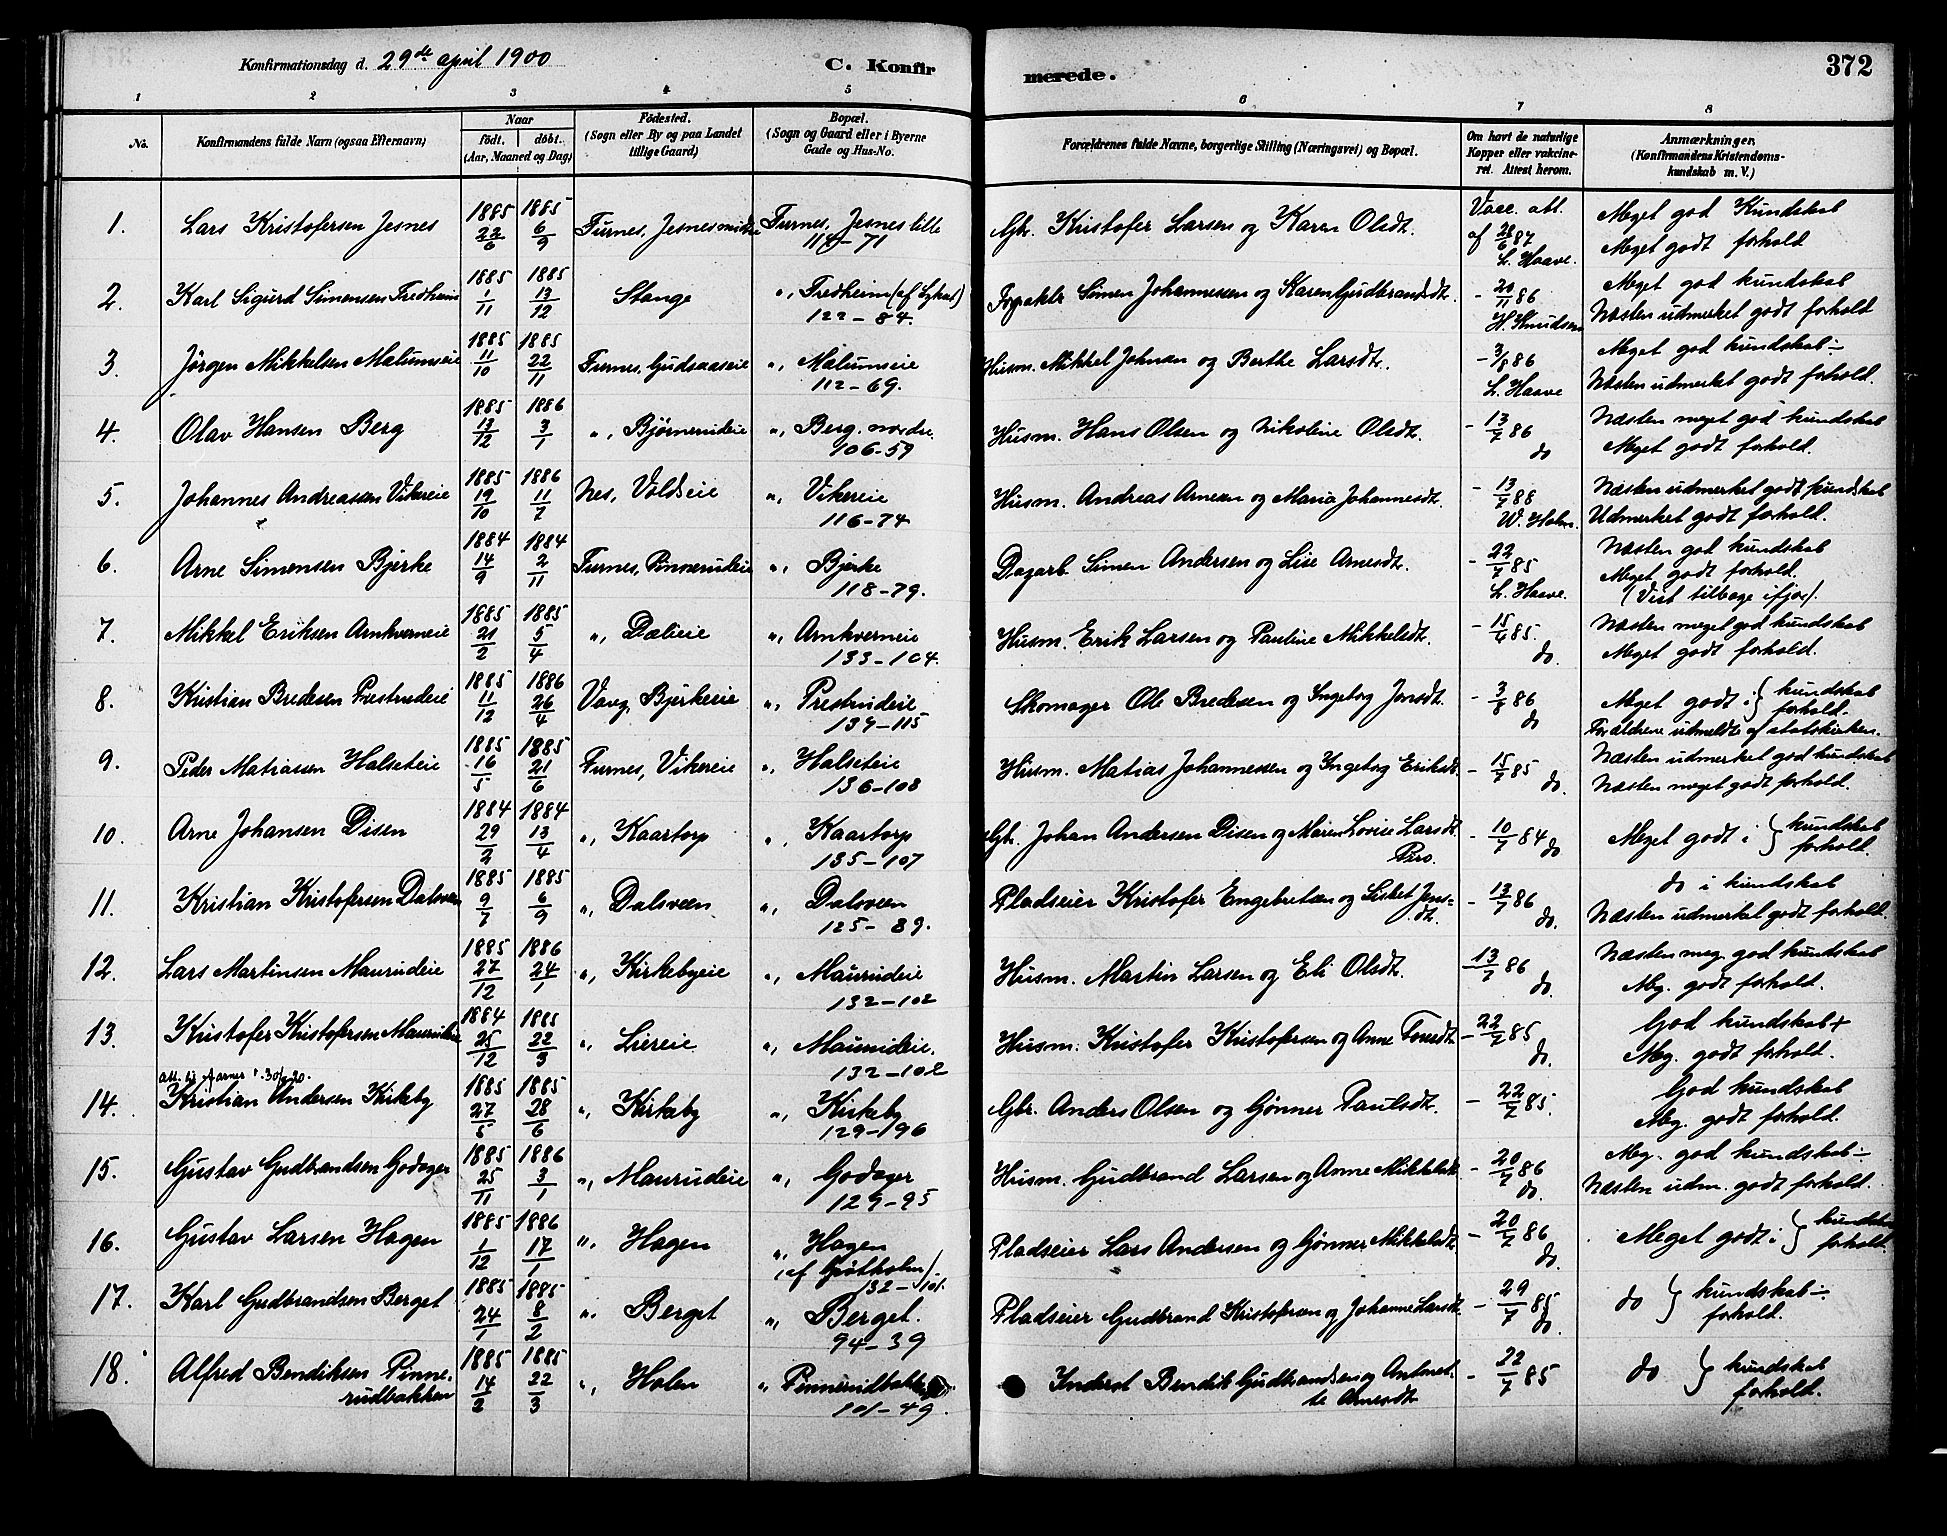 Konfirmationsdag d. 29de april 1900
C. Konfirmerede.
372
1 2 3 4 5 6 7 8
No.
Konfirmandens fulde Navn (ogsaa Efternavn)
Naar født. døbt. (Aar, Maaned og Dag)
Fødested. (Sogn eller By og paa Landet tillige Gaard)
Bopæl. (Sogn og Gaard eller i Byerne Gade og Hus-No.
Forældrenes fulde Navne, borgerlige Stilling (Næringsvei) og Bopæl.
Om havt de naturlige Kopper eller vakcineret. Attest herom.
Anmærkninger. (Konfirmandens Kristendomskundskab m. V.)
1. Lars Kristofersen Jesnes 1885 22/6 1885 6/9 Furnes, Jesnes Furnes, Jesnes lille 114-71 Gbr. Kristofer Larsen og Karen Olsdt. Vacc. att. af 28/6 87 L. Haave. Meget god Kundskab Meget godt forhold
2. Karl Sigurd Simensen Fredheim 1885 1/11 1885 13/12 Stange ", Fredheim (af Lykset) 122-84. Forpakter Simen Johannessen og Karen Gudbrandsdt. - 20/11 86 H. Knudsen Meget god kundskab Næsten udmerket godt forhold
3. Jørgen Mikkelsen Malumseie 1885 11/10 1885 22/11 Furnes, Gudsaaseie ", Malumseie 112-69. Husm. Mikkel Johnsen og Berthe Larsdt. - 3/8 86 L. Haave Meget god kundskab ÷ Næsten udmerket godt forhold.
4. Olav Hansen Berg 1885 13/12 1886 3/1 ", Bjørnerudeie ", Berg nordre. 106-59 Husm. Hans Olsen og Nikoline Olsdt. - 13/7 86 do Næsten meget god kundskab Meget godt forhold.
5. Johannes Andreassen Vikereie 1885 19/10 1886 11/7 Nes, Voldseie ", Vikereie 116-74 Husm. Andreas Arnesen og Maria Johannesdt. - 13/7 88 W. Holm. Næsten udmerket godt kundskab Udmerket godt forhold.
6. Arne Simensen Bjerke 1884 14/9 1884 2/11 Furnes, Pinnerudeie ", Bjerke 118-79. Dagarb. Simen Andersen og Lise Arnesdt. - 22/7 85 L. Haave. Næsten god kundskab Meget godt forhold. (Vist tilbage ifjor).
7. Mikkel Eriksen Arnkverneie 1885 21/2 1885 5/4 ", Dælieie ", Arnkverneie 133-104. Husm. Erik Larsen og Pauline Mikkelsdt. - 15/7 85. do. Næsten meget god kundskab Meget godt forhold.
8. Kristian Bredesen Prestrudeie 1885 11/12 1886 26/4 Vang, Bjerkeeie ", Prestrudeie 139-115 Skomager Ole Bredesen og Ingeborg Jonsdt. - 3/8 86 do Meget godt i } kundskab forhold. Forældrene udmeldte af statskirken.
9. Peder Matiassen Halseteie 1885 16/5 1885 21/6 Furnes, Vikereie ", Halseteie 136-108 Husm. Matias Johannessen og Ingeborg Eriksdt. - 15/7 85 do. Næsten udmerket god kundskab Næsten meget godt forhold.
10. Arne Johansen Disen 1884 29/2 1884 13/4 ", Kaartorp ", Kaartorp 135-107 Gbr. Johan Andersen Disen og Maren Lovise Larsdt. Piro. - 10/7 84 do Meget godt i } kundskab forhold.
11. Kristian Kristofersen Dalsveen 1885 9/7 1885 6/9 ", Dalsveen ", Dalsveen 125-89. Pladseier Kristofer Engebretsen og Lisbet Jensdt. - 13/7 86 do. do i kundskab Næsten udmerket godt forhold.
12. Lars Martinsen Maurudeie 1885 27/12 1886 24/1 ", Kirkebyeie ", Maurudeie 132-102 Husm. Martin Larsen og Eli Olsdt. - 13/7 86 do. Næsten meg. god kundskab Meg. godt forhold.
13. Kristofer Kristofersen Maurudeie 1884 25/12 1885 22/3 ", Liereie ", Maurudeie. 132-102 Husm. Kristofer Kristofersen og Anne Tomsdt. - 22/7 85 do. God kundskab + Meg. godt forhold.
14. att. 30/9-20. Kristian Andersen Kirkeby 1885 27/5 1885 28/6 ", Kirkeby ", Kirkeby 129-196 Gbr. Anders Olsen og Gønner Paulsdt. - 22/7 85. God kundskab Meg. godt forhold.
15. Gustav Gudbrandsen Godager 1885 25/11 1886 3/1 ", Maurudeie ", Godager 129-95 Husm. Gudbrand Larsen og Anne Mikkelsdt. - 20/7 86 do. Meg. god kundskab ÷ Næsten udm. godt forhold.
16. Gustav Larsen Hagen 1885 1/12 1886 17/1 ", Hagen ", Hagen (af Grøtholm) 132-101. Pladseier Lars Andersen og Gønner Mikkelsdt. - 20/7 86 do. Meget godt i } kundskab forhold.
17. Karl Gudbrandsen Berget 1885 24/1 1885 8/2 ", Berget ", Berget. 94-39 Pladseier Gudbrand Kristofersen og Johanne Larsdt. - 29/7 85 do. do } kundskab ÷ forhold.
18. Alfred Bendiksen Pinnerudbakken 1885 14/2 1885 22/3 ", Holen ", Pinnerudbakken 101-49. Inderst Bendik Gudbrandsen og Antonette Arnesdt. - 22/7 85 do } kundskab forhold.